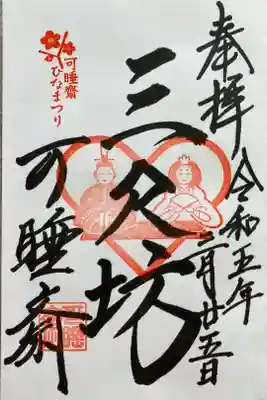 奉拝
令和五年
三月廿五日
三尺坊
可睡斎
可睡齋
ひなまつり